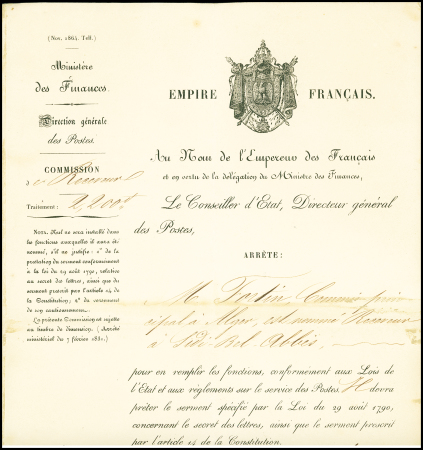 (Nov. 1864. Tell.)
Ministère
des Finances.
Direction générale
des Postes.
COMMISSION
de Receveur
Traitement: 2,200f
NOTA. Nul ne sera installé dans
les fonctions auxquelles il aura été
nommé, s'il ne justifie: 1° de la
prestation du serment conformément
à la loi du 29 août 1790, relative
au secret des lettres, ainsi que du
serment prescrit par l'article 14 de
la Constitution; 2° du versement
de son cautionnement.
La présente Commission est sujette
au timbre de dimension. (Arrêté
ministériel du 7 février 1831.)
EMPIRE FRANÇAIS.
Au Nom de l'Empereur des Français
et en vertu de la délégation du Ministre des Finances,
Le Conseiller d'Etat, Directeur général
des Postes,
ARRÊTE:
M. Commis prin
cipal à Alger, est nommé Receveur
à Sidi-Bel-Abbès,
pour en remplir les fonctions, conformément aux Lois de
l'Etat et aux règlements sur le service des Postes. Il devra
prêter le serment spécifié par la Loi du 29 août 1790,
concernant le secret des lettres, ainsi que le serment prescrit
par l'article 14 de la Constitution.